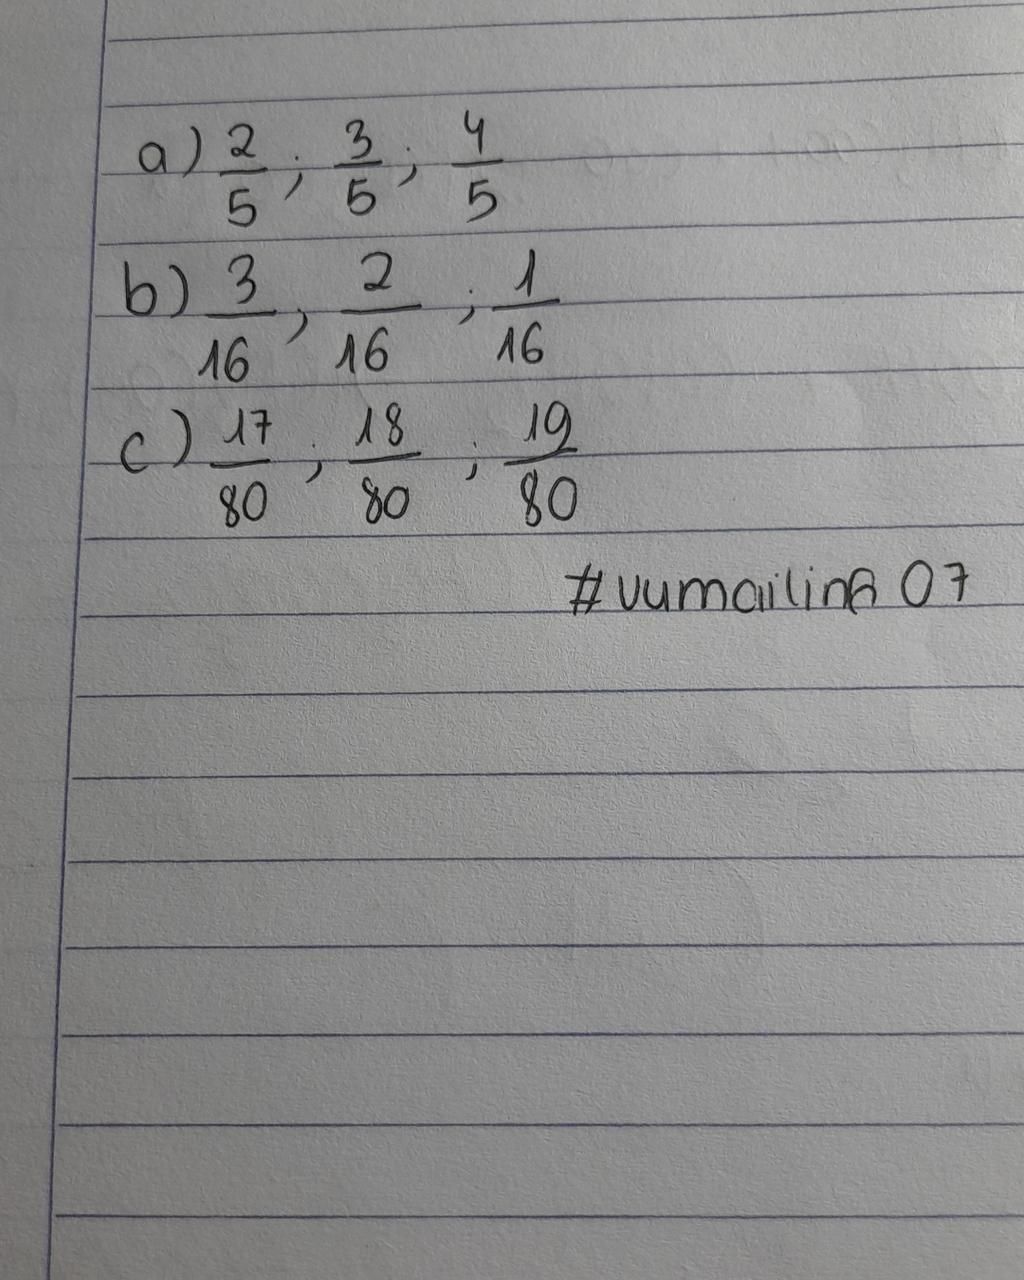 a) 2/5 ; 3/5 ; 4/5
b) 3/16 ; 2/16 ; 1/16
c) 17/80 ; 18/80 ; 19/80
#vumailinh 07